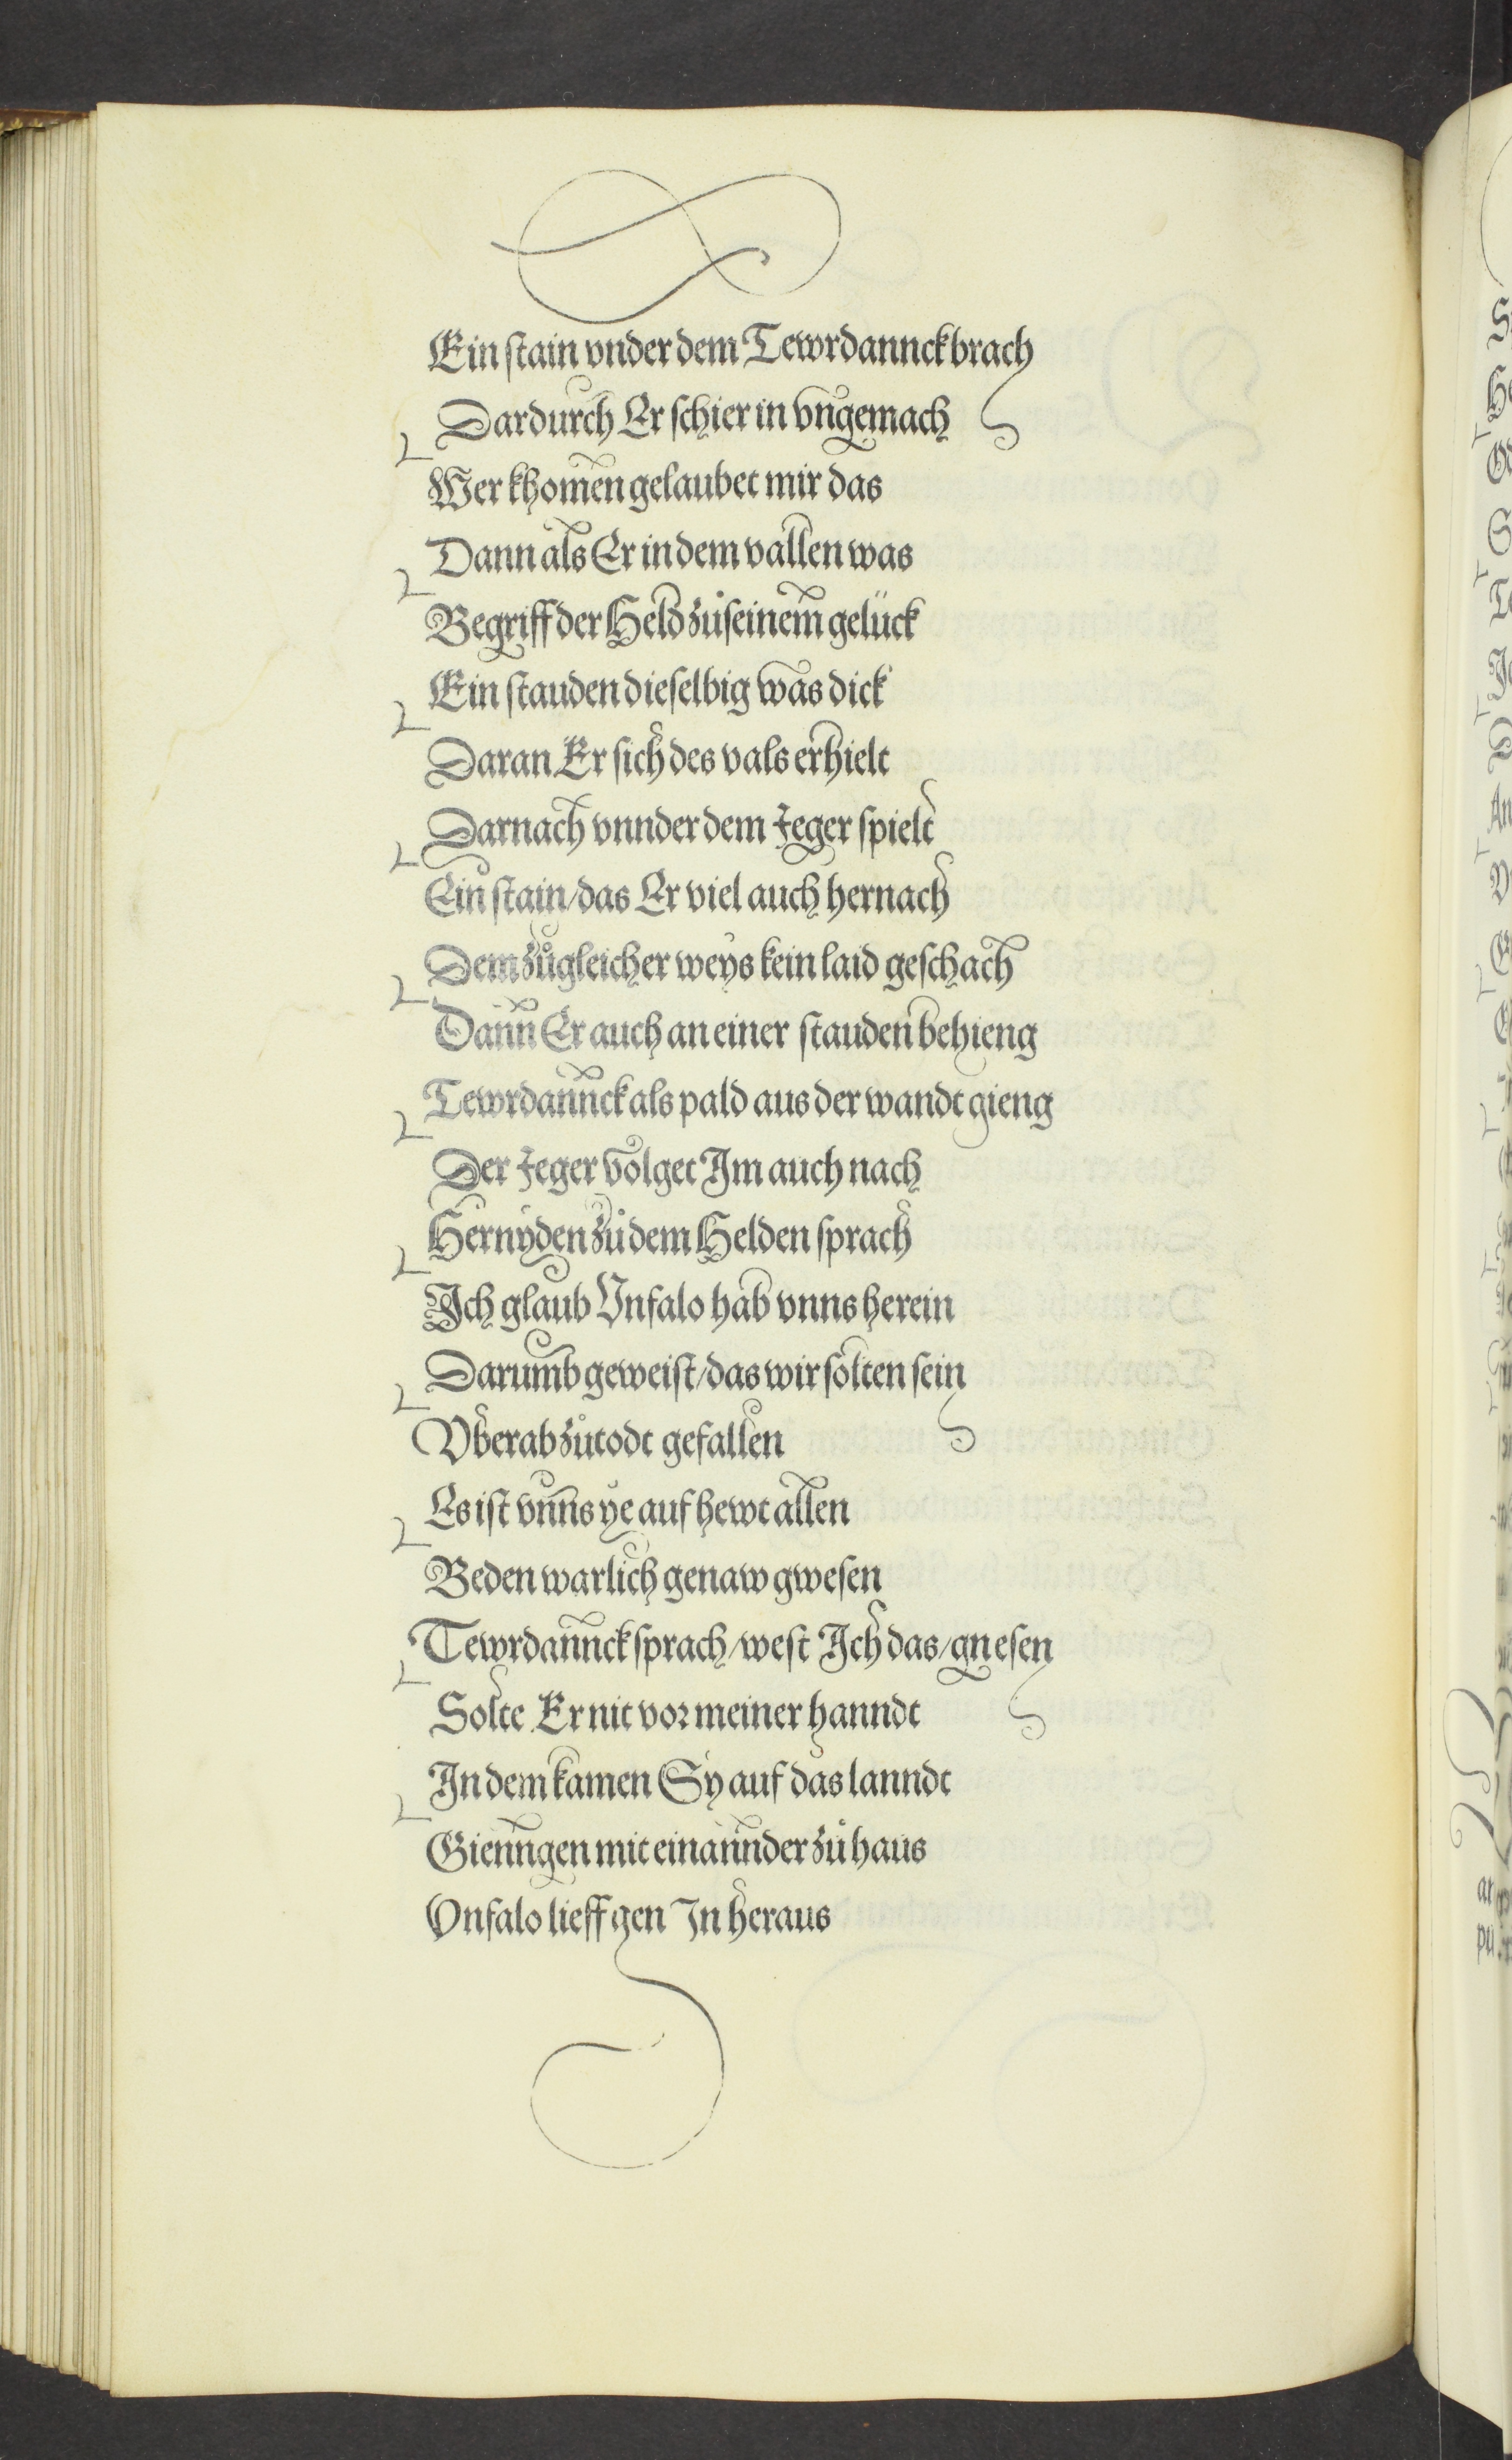 Ein stain vnder dem Tewrdannck brach
Dardurch Er schier in vngemach
Wer khomen gelaubet mir das
Dann als Er in dem vallen was
Begriff der Held zů seinem gelück
Ein stauden dieselbig was dick
Daran Er sich des vals erhielt
Darnach vnnder dem Jeger spielt
Ein stain/das Er viel auch hernach
Dem zůgleicher weys kein laid geschach
Dann Er auch an einer stauden behieng
Tewrdannck als pald aus der wandt gieng
Der Jeger volget Im auch nach
Hernyden zů dem Helden sprach
Ich glaub Vnfalo hab vnns herein
Darumb geweist/das wir solten sein
Vber ab zů todt gefallen
Es ist vnns ye auf hewt allen
Beden warlich genaw gwesen
Tewrdannck sprach/west Ich das/gnesen
Solte Er nit vor meiner hanndt
In dem kamen Sy auf das lanndt
Gienngen mit einannder zů haus
Vnfalo lieff gen In heraus